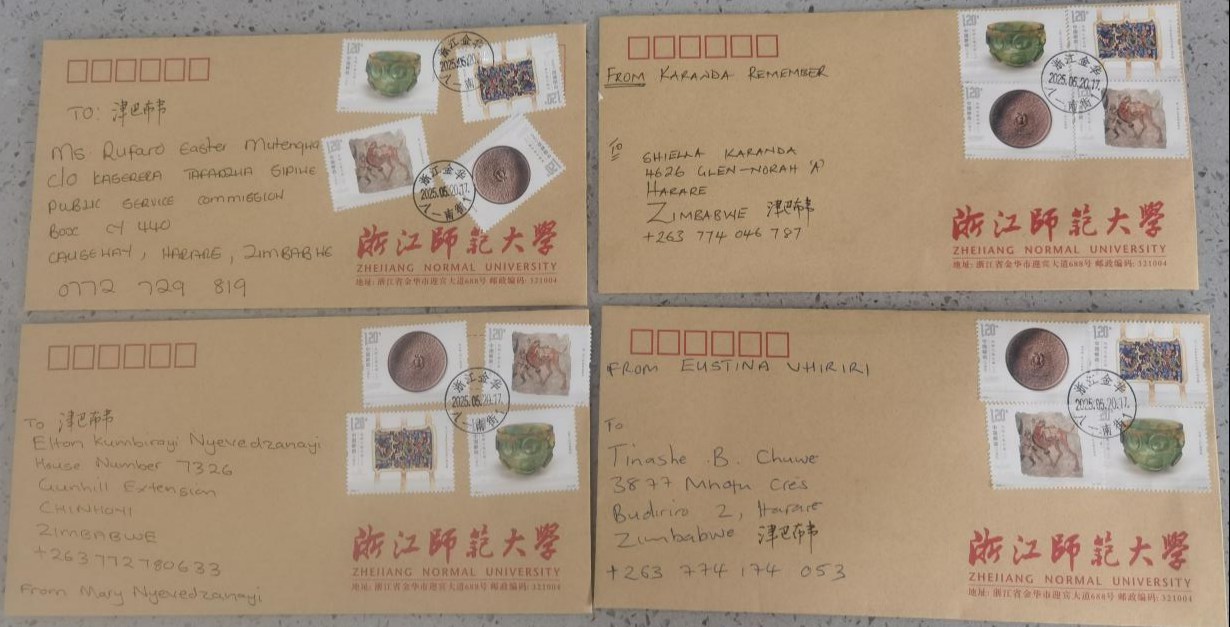 TO: 津巴布韦
Ms Rufaro Easter Mutengwa
c/o KASERERA TAFADZWA SIPIWE
PUBLIC SERVICE COMMISSION
BOX CY 440
CAUSEWAY, HARARE, ZIMBABWE
0772 729 819
1.20元
1.20元
1.20元
1.20元
浙江金华
2025.05.20.17.
八一南街1
浙江金华
2025.05.20.17.
八一南街1
浙江師範大學
ZHEJIANG NORMAL UNIVERSITY
地址: 浙江省金华市迎宾大道688号 邮政编码: 321004
FROM KARANDA REMEMBER
TO
SHIELLA KARANDA
4626 GLEN-NORAH 'A'
HARARE
ZIMBABWE 津巴布韦
+263 774 046 787
1.20元
1.20元
1.20元
浙江金华
2025.05.20.17.
八一南街1
浙江師範大學
ZHEJIANG NORMAL UNIVERSITY
地址: 浙江省金华市迎宾大道688号 邮政编码: 321004
To 津巴布韦
Elton Kumbirayi Nyevedzanayi
House Number 7326
Gunhill Extension
CHINHOYI
ZIMBABWE
+263772780633
From Mary Nyevedzanayi
1.20元
1.20元
1.20元
1.20元
浙江金华
2025.05.20.17.
八一南街1
浙江師範大學
ZHEJIANG NORMAL UNIVERSITY
地址: 浙江省金华市迎宾大道688号 邮政编码: 321004
FROM EUSTINA VHIRIRI
To
Tinashe .B. Chuwe
3877 Mhofu Cres
Budiriro 2, Harare
Zimbabwe 津巴布韦
+263 774 174 053
1.20元
1.20元
1.20元
浙江金华
2025.05.20.17.
八一南街1
浙江師範大學
ZHEJIANG NORMAL UNIVERSITY
地址: 浙江省金华市迎宾大道688号 邮政编码: 321004